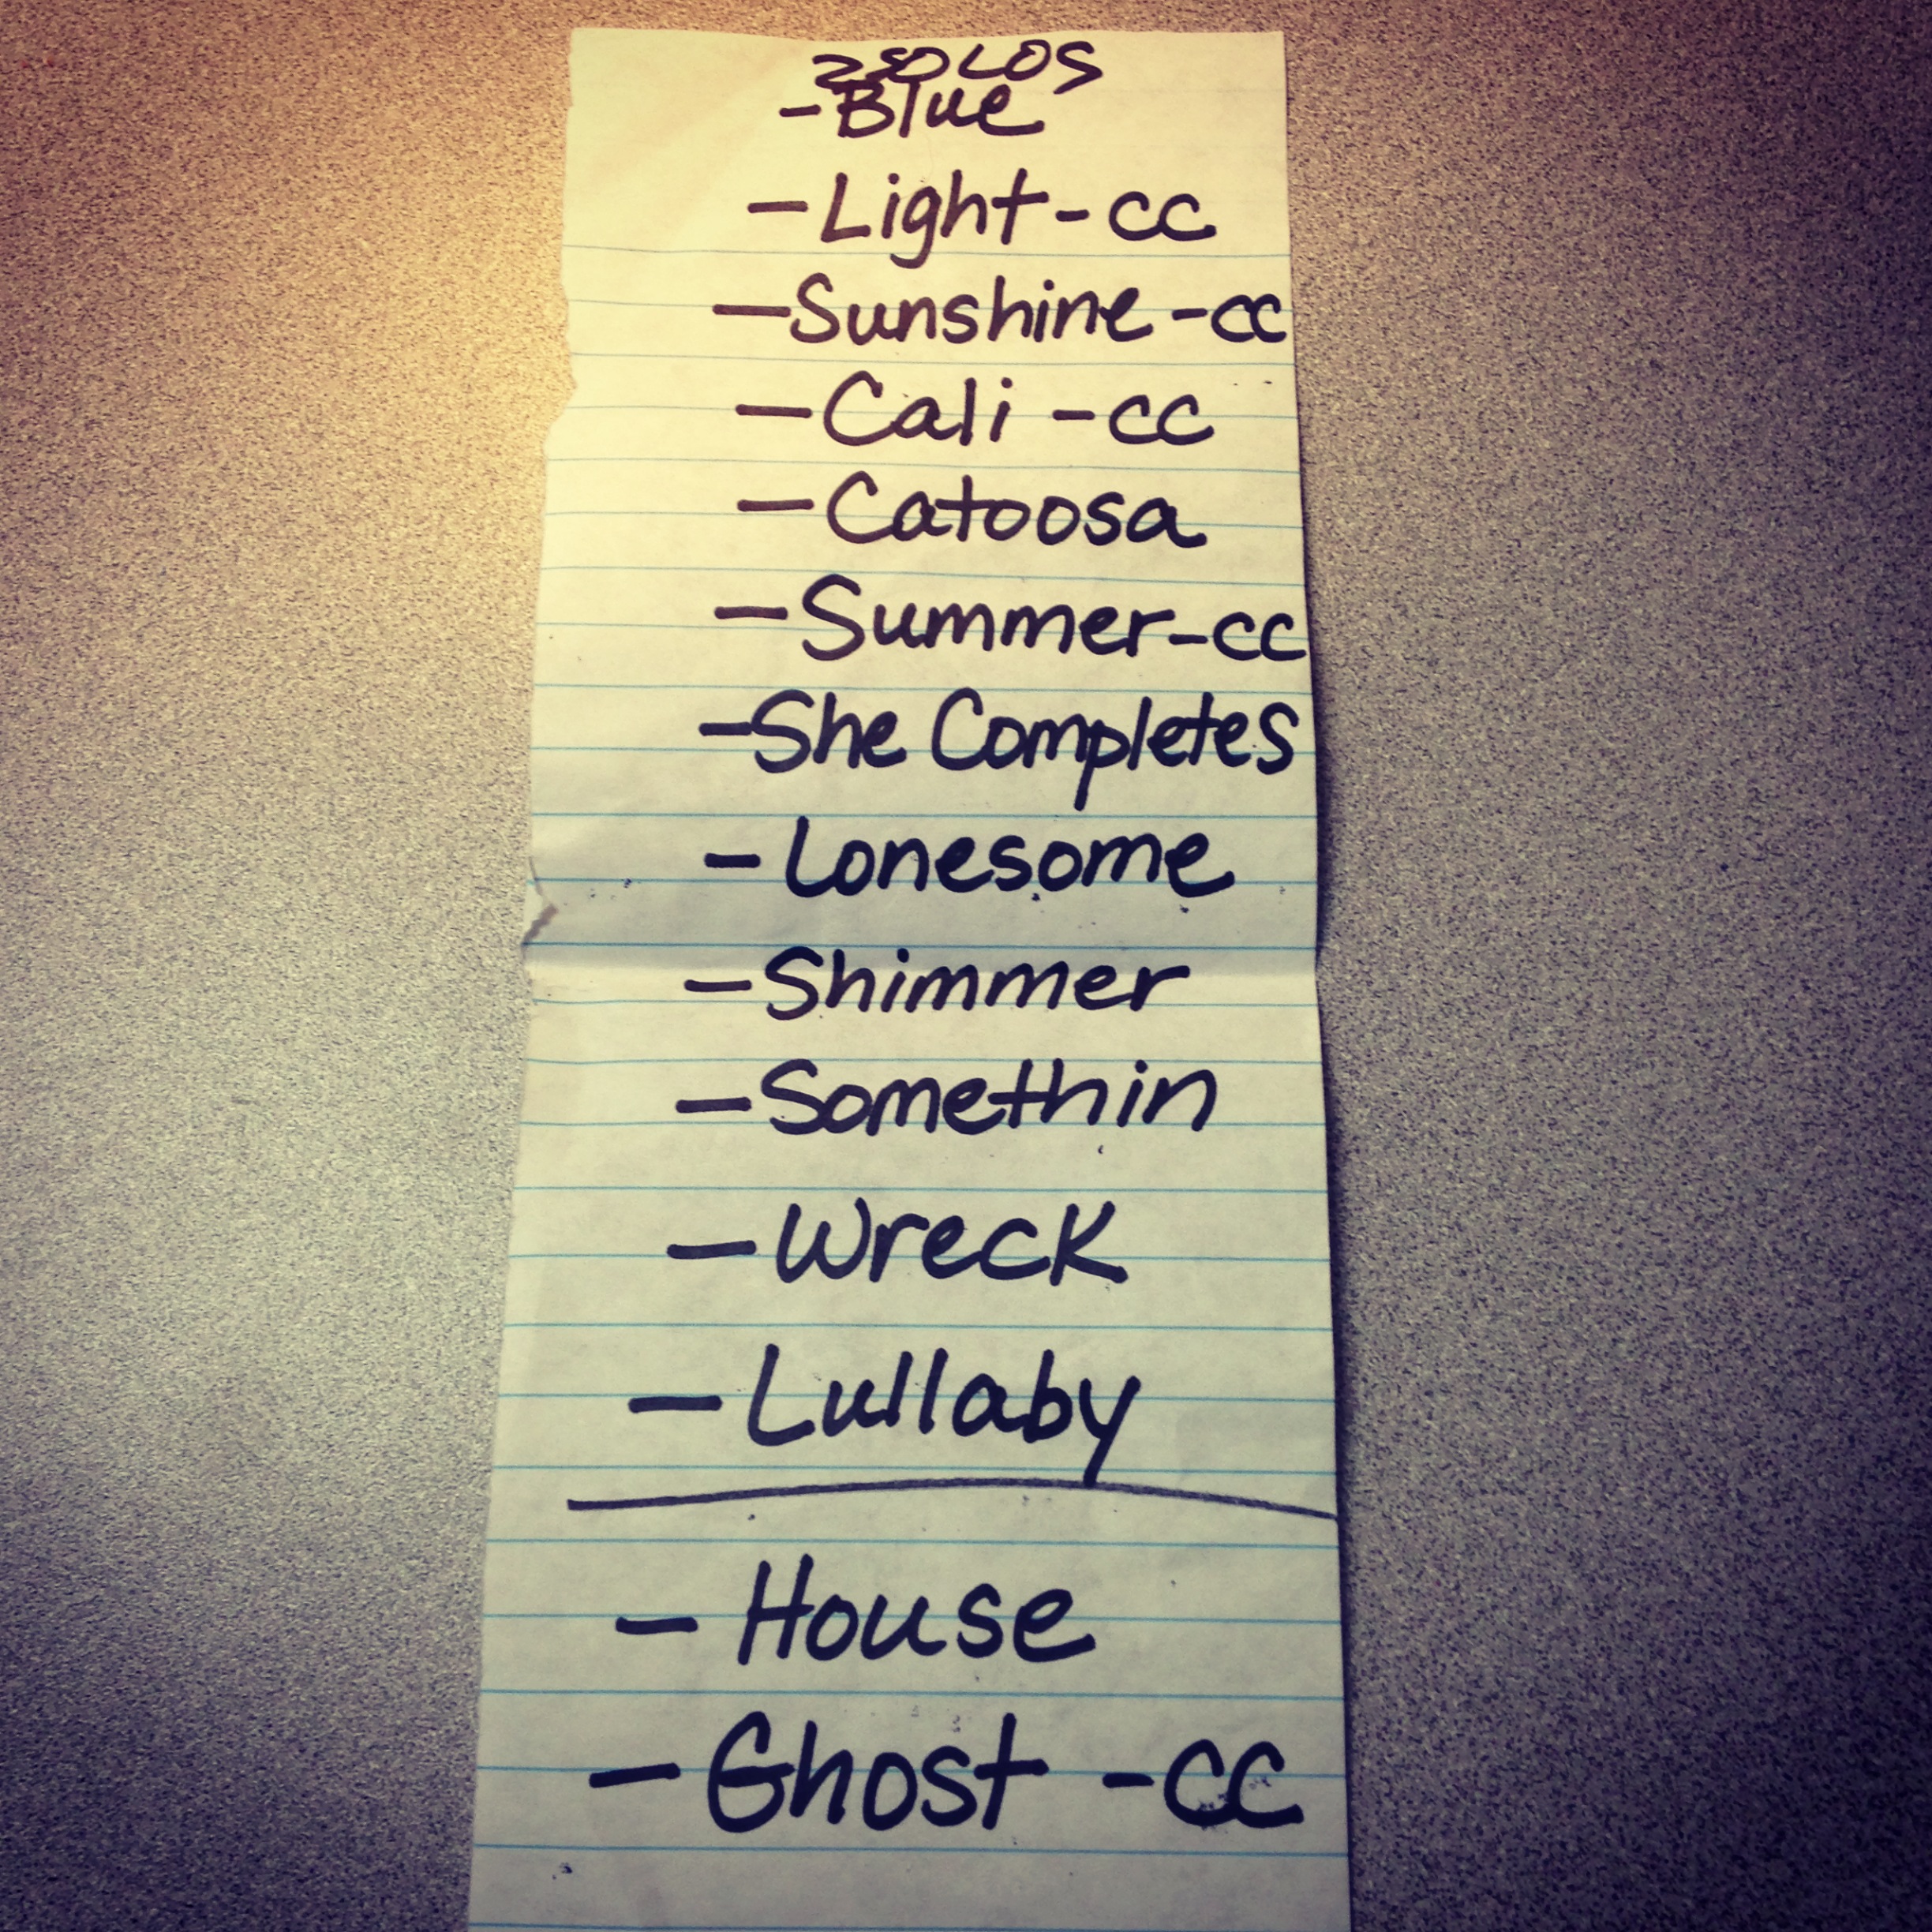 2 SOLOS
- Blue
- Light - cc
- Sunshine - cc
- Cali - cc
- Catoosa
- Summer - cc
- She Completes
- Lonesome
- Shimmer
- Somethin
- Wreck
- Lullaby
- House
- Ghost - cc